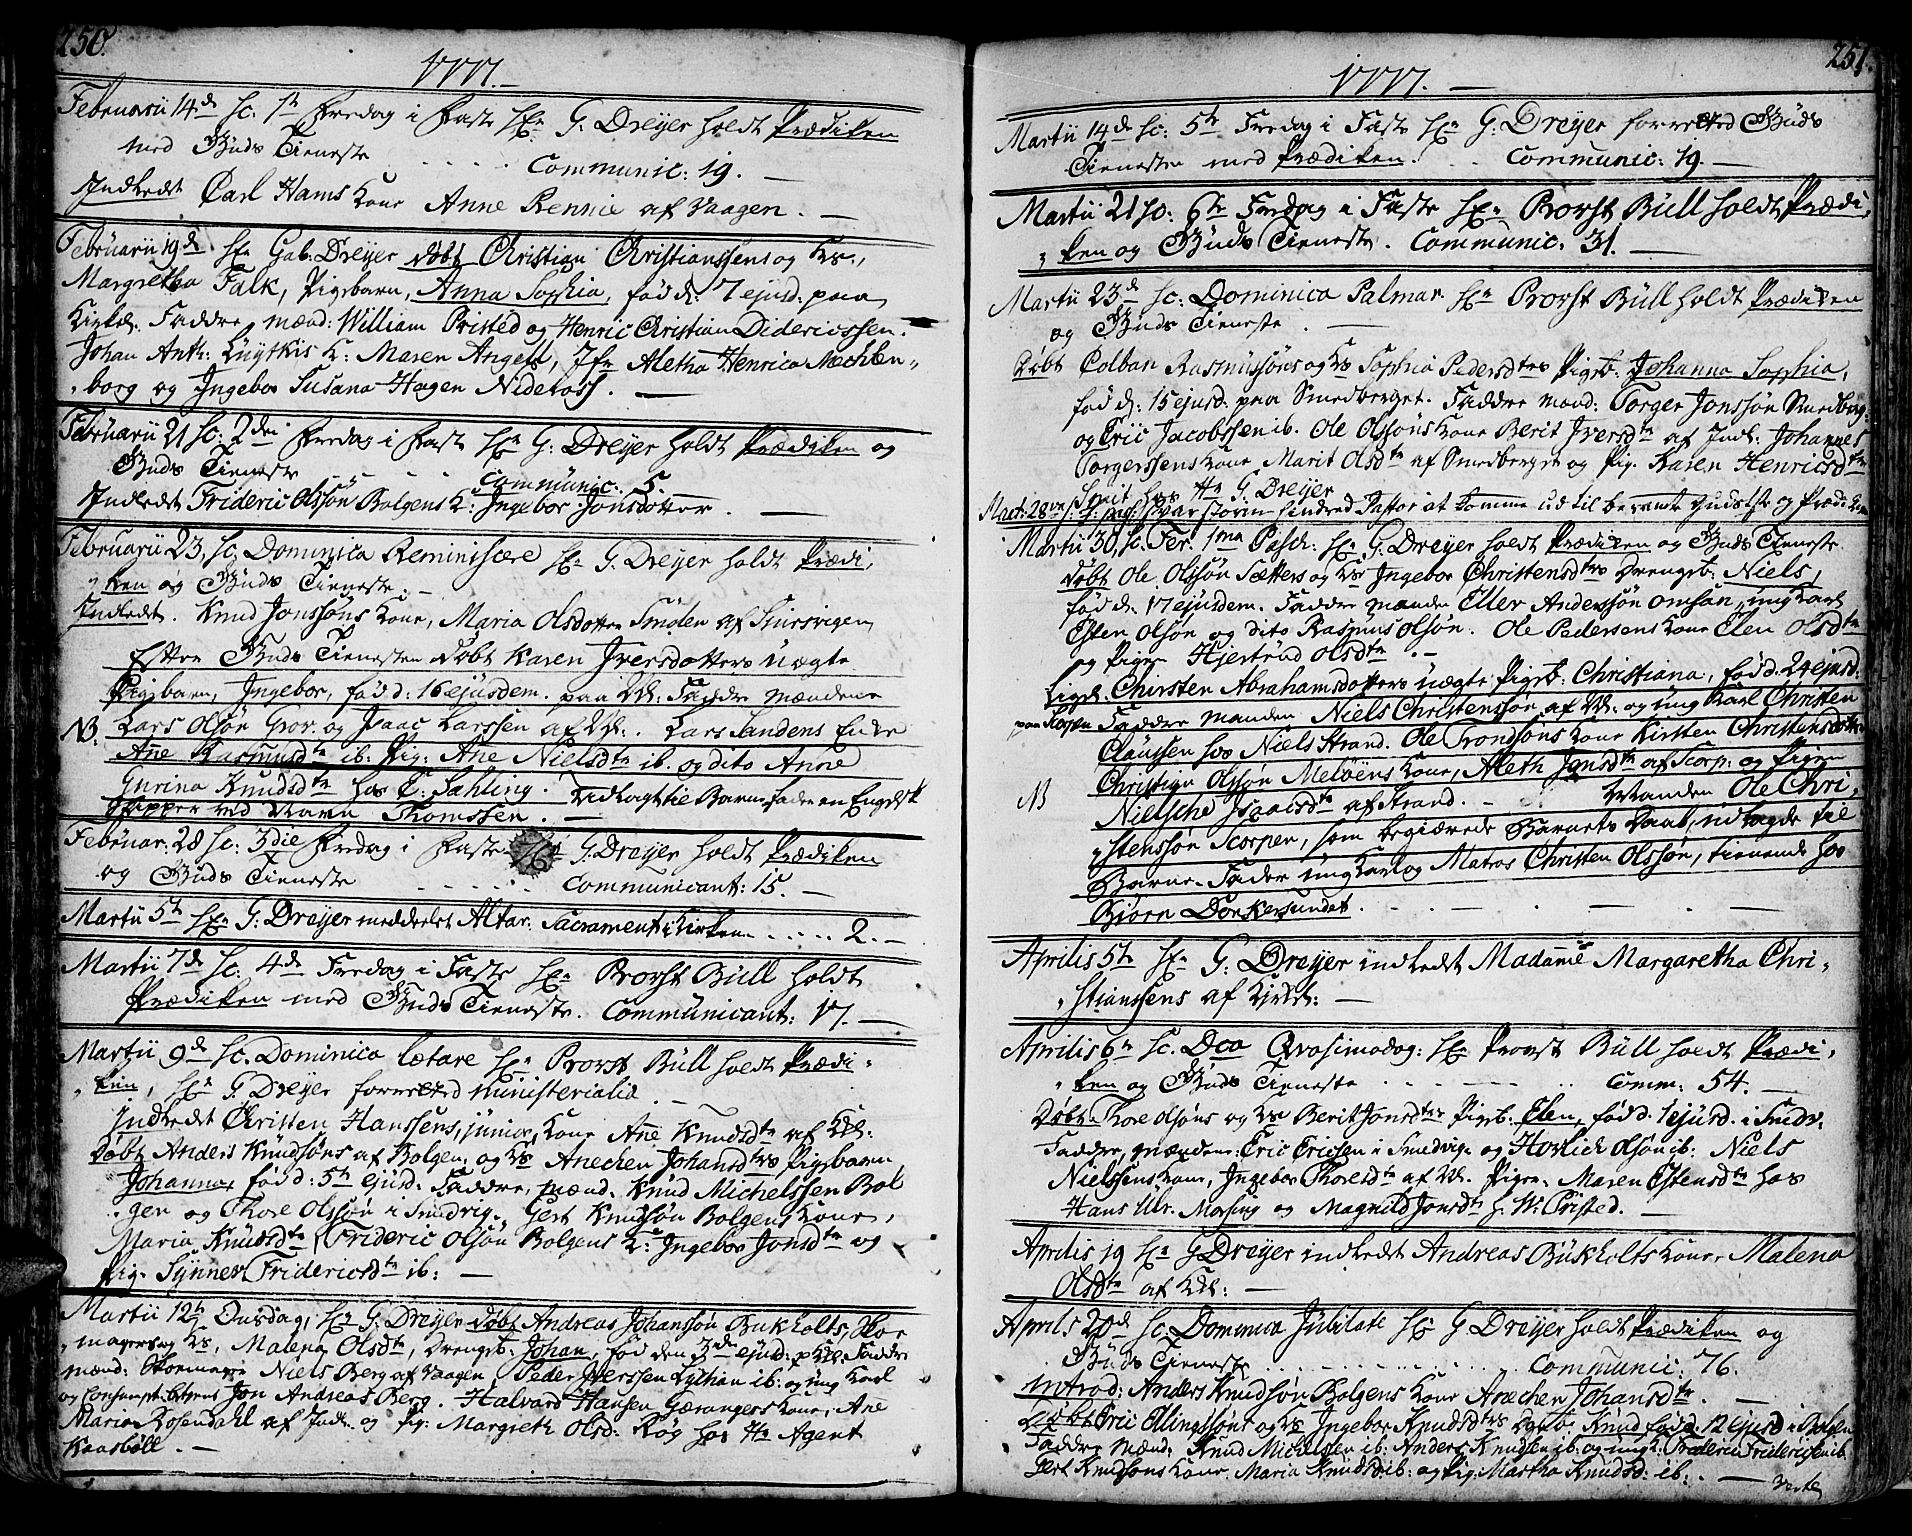 250.
1777.
Februarii 14de sc. 1te Fredag i Faste Hr. G. Dreyer holdt Prædiken
med Guds Tieneste . . . . . Communic: 19. —
Indledt Carl Hams Kone Anne Rennie af Vaagen. —
Februarii 19de Hr. Gab. Dreyer døbt Christian Christianssens og Hs.
Margretha Falk, Pigebarn, Anna Sophia, fød d: 7 ejusd. paa
Kirkel. Faddre mænd: William Pristed og Henric Christian Didericssen.
Johan Anth: Luytkis K: Maren Angell, Jfr. Aletha Henrica Mechlen-
borg og Ingebor Susana Hagen Nideross. —
Februarii 21 sc: 2den Fredag i Faste Hr. G: Dreyer holdt Prædiken og
Guds Tieneste . . . . Communic: 5.
Indledt Frideric Olssøn Bolgens K: Ingebor Jonsdotter. —
Februarii 23, sc. Dominica Reminiscere Hr. G. Dreyer holdt Prædi-
ken og Guds Tieneste. —
Indledt. Knud Jonssøns Kone, Maria Olsdotter Smølen af
Efter Guds Tienesten døbt Karen Iversdotters uægte
Pigebarn, Ingebor, fød d: 16 ejusdem. paa Kl. Faddre mændene
NB. Lars Olsøn Grov. og Isaac Larssen af Kl. Lars Sandens Enke
Ane Rasmusdtr ib. Pig: Ane Nielsdtr ib. og dito Anne
Gurina Knudsdtr hos E: Sahling. Udlagt til Barne-Fader en Engelsk
Skipper ved Navn Thomssen. —
Februar: 28 sc: 3die Fredag i Faste G. Dreyer holdt Prædiken
og Guds Tieneste . . . . . . Communicant: 15. —
Martii 5te Hr. G: Dreyer meddelet Altar: Sacrament i Kirken. . . . . . 2. —
Martii 7de sc. 4de Fredag i Faste Hr. Provst Büll holdt
Prædiken med Guds Tieneste. Communicant: 17. —
Martii 9de sc. Dominica lætare Hr. Provst Büll holdt Prædi-
ken, Hr. G. Dreyer forretted Ministerialia. —
Indledt Christen Hanssens, junior, Kone Ane Knudsdtr af Kl:
Døbt Anders Knudsøns af Bolgen, og Hs Anechen Johansdtrs Pigebarn
Johanna, fød d: 5te ejusd. Faddre, mænd. Knud Michelssen Bol
gen og Thore Olssøn i Smedvig. Gert Knudsøn Bolgens Kone,
Maria Knudsdtr, Frideric Olsøn Bolgens K: Ingebor Jonsdtr og
Pig. Synnev Fridericsdtr ib: —
Martii 12te Onsdag, Hr. G. Dreyer døbt Andreas Johanssøn Bukholts, Skoe
magers og Hs, Malena Olsdtr, Drengeb: Johan, fød den 3de ejusd: p Kl. Faddre
mænd: Skoemager Niels Berg af Vaagen Peder Iverssen ib: og ung Karl
og Jon Andreas Berg. Halvard Hansen Kone, Ane
Maria Rosendahl af Indl. og Pig: Margreth Olsd: Røg hos Hr Agent
Kaasbøll. —
251.
1777. —
Martii 14de sc: 5te Fredag i Faste Hr. G: Dreyer forretted Guds
Tieneste med Prædiken. . . Communic: 19. —
Martii 21 sc: 6te Fredag i Faste Hr. Provst Büll holdt Prædi-
ken og Guds Tieneste. Communic: 31. —
Martii 23de sc: Dominica Palmar. Hr. Provst Büll holdt Prædiken
og Guds Tieneste. —
Døbt Colban Rasmussøns og Hs Sophia Pedersdtrs Pigeb. Johanna Sophia,
fød d: 15 ejusd. paa Smedberget. Faddre mænd: Torger Jonssøn Smedberg.
og Eric Jacobssen ib. Ole Olsøns Kone Berit Iversdtr af Indl: Johannes
Torgerssens Kone Marit Olsdtr af Smedberget og Pig. Karen Henricsdtr
Mart: 28ve Hr G. Dreyer
svar storm hindred Pastor at komme ud til berømte Gudstste og Prædiken
Martii 30, sc. Fer. 1ma Pasch: Hr. G: Dreyer holdt Prædiken og Guds Tieneste.
Døbt Ole Olssøn Sætters og Hs Ingebor Christensdtrs Drengeb: Niels,
fød d: 17 ejusdem. Faddre mændene Eller Anderssøn Omsan, ung Karl
Esten Olsøn og dito Rasmus Olsøn. Ole Pedersens Kone Elen Olsdtr
og Pigen Hjertrud Olsdtr. —
Liges. Chirsten Abrahamsdotters uægte Pigeb: Christiana, fød d. 24 ejusd.
paa Skorpen Faddre mænden Niels Christenssøn af Kl. og ung Karl Christen
Claussen hos Niels Strand. Ole Trondsøns Kone Kirsten Christensdotter
Christian Olssøn Meløens Kone, Aleth Jonsdtr af Scorp: og Pigen
NB Nielsche Isaacsdtr af Strand. — Manden Ole Chri-
stenssøn Scorpen, som begiærede Barnets Daab, udlagde til
Barne-Fader ung Karl og Matros Christen Olssøn, tienende hos
Biørn Dorkersundet. — — —
Aprilis 5te Hr. G: Dreyer indledt Madame Margaretha Chri-
stianssens af Kirkel: —
Aprilis 6te sc. Dca Qvasimodog: Hr. Provst Büll holdt Prædi-
ken og Guds Tieneste . . . . . Comm: 54. —
Døbt. Thore Olsøns og Hs Berit Jonsdtrs Pigeb. Elen, fød d. 1 ejusd. i Smedv.
Faddre, mændene: Eric Ericsen i Smedvig og Hovlich Olsøn ib: Niels
Nielssens Kone, Ingebor Thoresdtr af Kl. Pigen. Maren Estensdtr hos
Hans Ulr. Morsing og Magnild Jonsdtr h. W. Pristed. —
Aprilis 19 Hr. G Dreyer indledt Andreas Bükholts Kone, Malena
Olsdtr af Kl: —
Aprilis 20de sc. Dominica Jubilate Hr. G Dreyer holdt Prædiken og
Guds Tieneste . . . . . . Communic: 76.
Introd: Anders Knudsøn Bolgens Kone Anechen Johansdtr. —
Døbt Eric Ellingssøns og Hs Ingebor Knudsdtrs Dgebr. Knud fød d. 12 ejusd i Bolgen
Faddre mænd: Knud Michelssen ib: Anders Knudsen ib: og ung K: Frideric Fridericsen ib.
Gert Knudsøns Kone Maria Knudsd: ib: og Pig: Martha Knudsd: ib: . —
verte